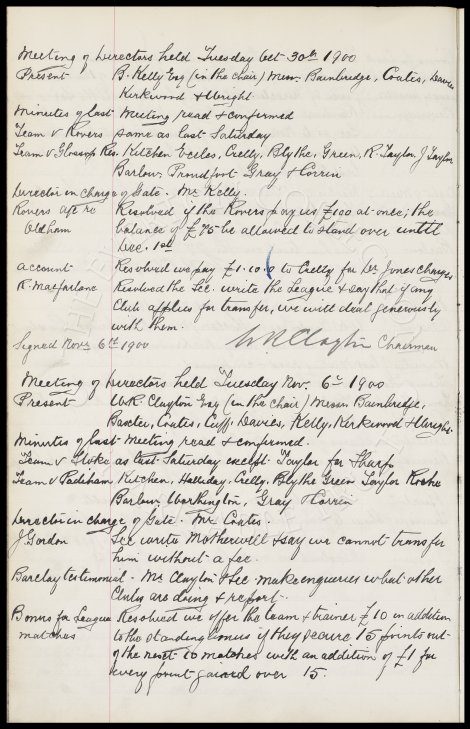 Meeting of Directors held Tuesday Oct 30th 1900
Present B. Kelly Esq (in the chair) Messrs Bainbridge, Coates, Davies
Kirkwood & Wright.
Minutes of last Meeting read & confirmed
Team v Rovers same as last Saturday
Team v Glossop Res. Kitchen Eccles, Crelly, Blythe, Green, R. Taylor, J Taylor
Barlow, Proudfoot Gray & Corrin
Director in charge of Gate. Mr Kelly.
Rovers afc re Resolved if the Rovers pay us £100 at once; the
Oldham balance of £75 be allowed to stand over until
Dec. 1st
Account Resolved we pay £1.10.0 to Crelly for Dr Jones charges
R. Macfarlane Resolved the Sec. write the League & say that if any
Club applies for transfer, we will deal generously
with them.
Signed Novr 6th 1900 W R Clayton Chairman
Meeting of Directors held Tuesday Nov. 6th 1900
Present W.R. Clayton Esq (in the chair) Messrs Bainbridge,
Baxter, Coates, Cuff, Davies, Kelly, Kirkwood & Wright.
Minutes of last Meeting read & confirmed.
Team v Stoke as last Saturday except Taylor for Sharp
Team v Padiham Kitchen, Halliday, Crelly, Blythe Green Taylor Roche
Barlow Worthington, Gray & Corrin
Director in charge of Gate. Mr Coates.
J Gordon Sec write Motherwell & say we cannot transfer
him without a fee.
Barclay testimonial. Mr Clayton & Sec make enquiries what other
Clubs are doing & report.
Bonus for League Resolved we offer the team & trainer £10 in addition
matches to the standing bonus if they secure 15 points out
of the next 10 matches with an addition of £1 for
every point gained over 15.